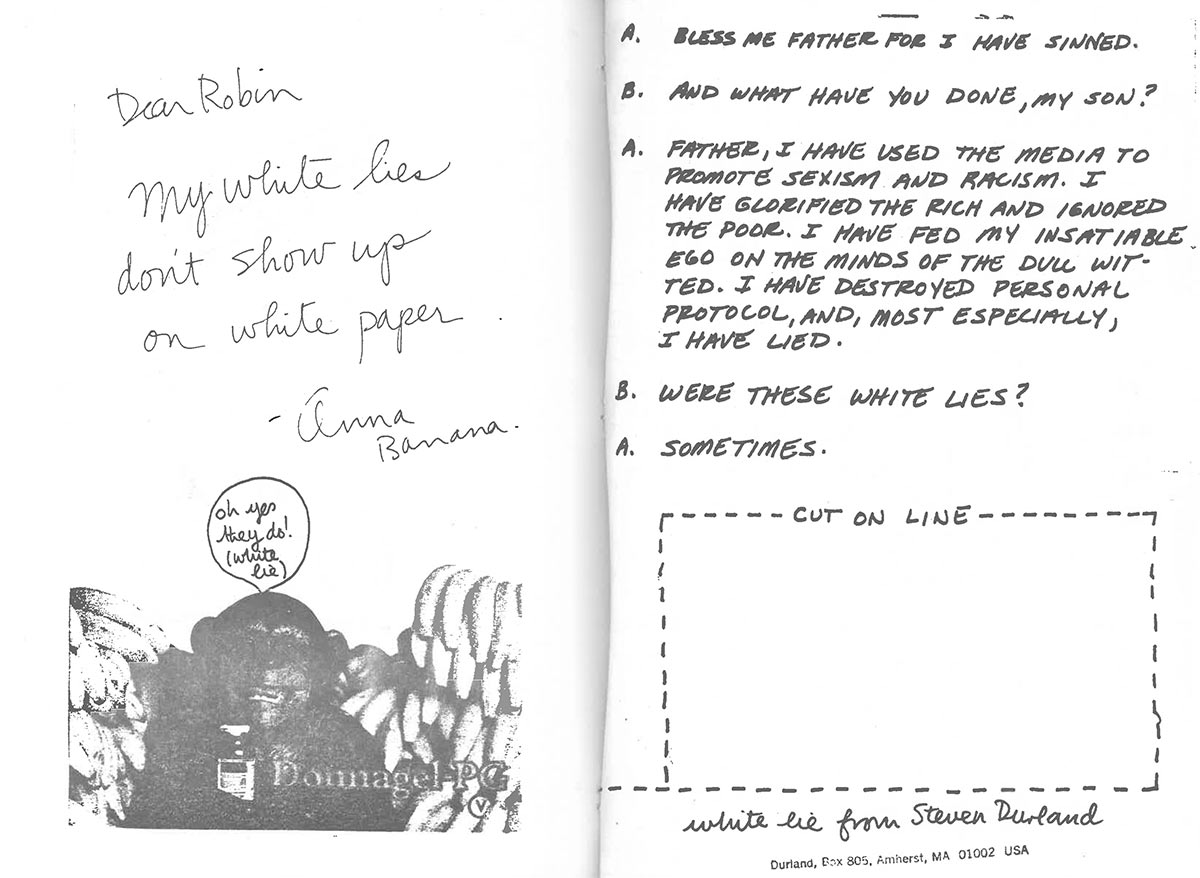 Dear Robin
My white lies
don't show up
on white paper.
- Anna
Banana.
oh yes
they do!
(white
lie)
Donnagel-PG
V
A. BLESS ME FATHER FOR I HAVE SINNED.
B. AND WHAT HAVE YOU DONE, MY SON?
A. FATHER, I HAVE USED THE MEDIA TO
PROMOTE SEXISM AND RACISM. I
HAVE GLORIFIED THE RICH AND IGNORED
THE POOR. I HAVE FED MY INSATIABLE
EGO ON THE MINDS OF THE DULL WIT-
TED. I HAVE DESTROYED PERSONAL
PROTOCOL, AND, MOST ESPECIALLY,
I HAVE LIED.
B. WERE THESE WHITE LIES?
A. SOMETIMES.
CUT ON LINE
white lie from Steven Durland
Durland, Box 805, Amherst, MA 01002 USA